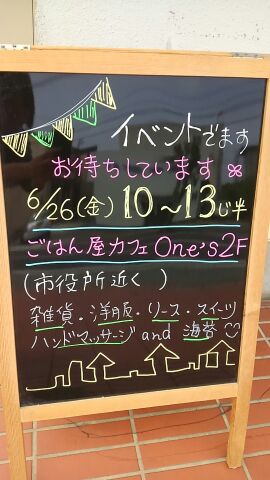 イベントでます
お待ちしています
6/26(金) 10〜13じ半
ごはん屋カフェ One's 2F
(市役所近く )
雑貨・洋服・リース・スイーツ
ハンドマッサージ and 海苔